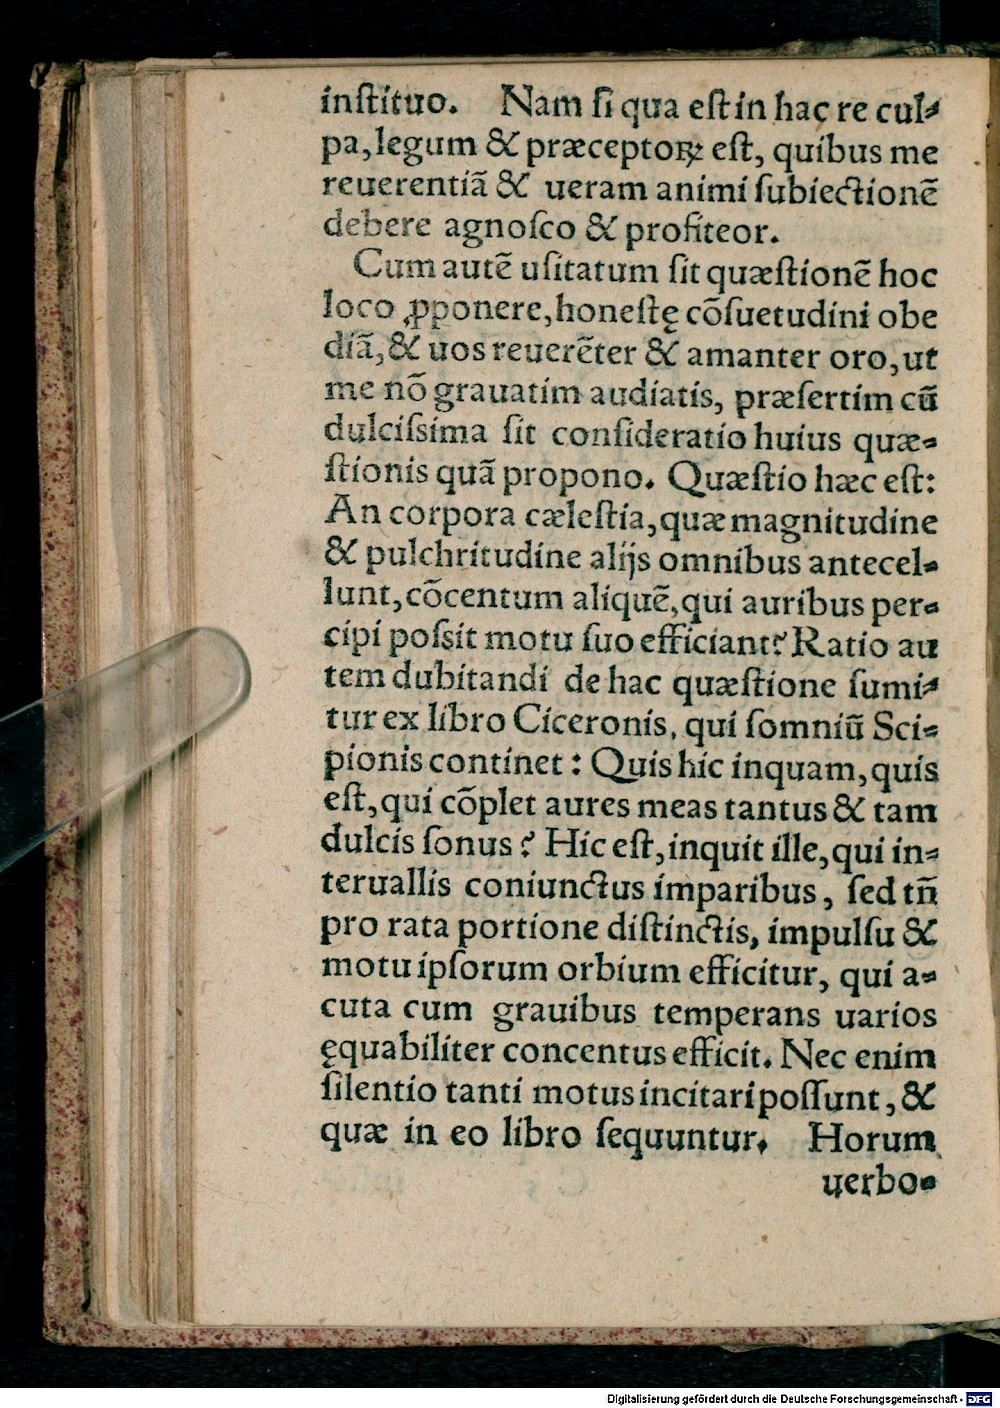 inſtituo. Nam ſi qua eſt in hac re cul⸗
pa, legum & præceptoꝝ eſt, quibus me
reuerentiā & ueram animi ſubiectionē
debere agnoſco & profiteor.
Cum autē uſitatum ſit quæſtionē hoc
loco ꝓponere, honeſtę cōſuetudini obe
diā, & uos reuerēter & amanter oro, ut
me nō grauatim audiatis, præſertim cū
dulciſsima ſit conſideratio huius quæ⸗
ſtionis quā propono. Quæſtio hæc eſt:
An corpora cæleſtia, quæ magnitudine
& pulchritudine alijs omnibus antecel⸗
lunt, cōcentum aliquē, qui auribus per⸗
cipi poſsit motu ſuo efficiant? Ratio au
tem dubitandi de hac quæſtione ſumi⸗
tur ex libro Ciceronis, qui ſomniū Sci⸗
pionis continet: Quis hic inquam, quis
eſt, qui cōplet aures meas tantus & tam
dulcis ſonus? Hic eſt, inquit ille, qui in⸗
teruallis coniunctus imparibus, ſed tn̄
pro rata portione diſtinctis, impulſu &
motu ipſorum orbium efficitur, qui a⸗
cuta cum grauibus temperans uarios
ęquabiliter concentus efficit. Nec enim
ſilentio tanti motus incitari poſſunt, &
quæ in eo libro ſequuntur. Horum
uerbo⸗
Digitalisierung gefördert durch die Deutsche Forschungsgemeinschaft - DFG